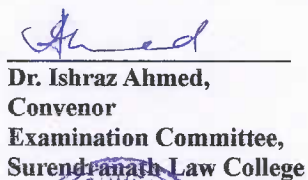 Dr. Ishraz Ahmed,
Convenor
Examination Committee,
Surendranath Law College